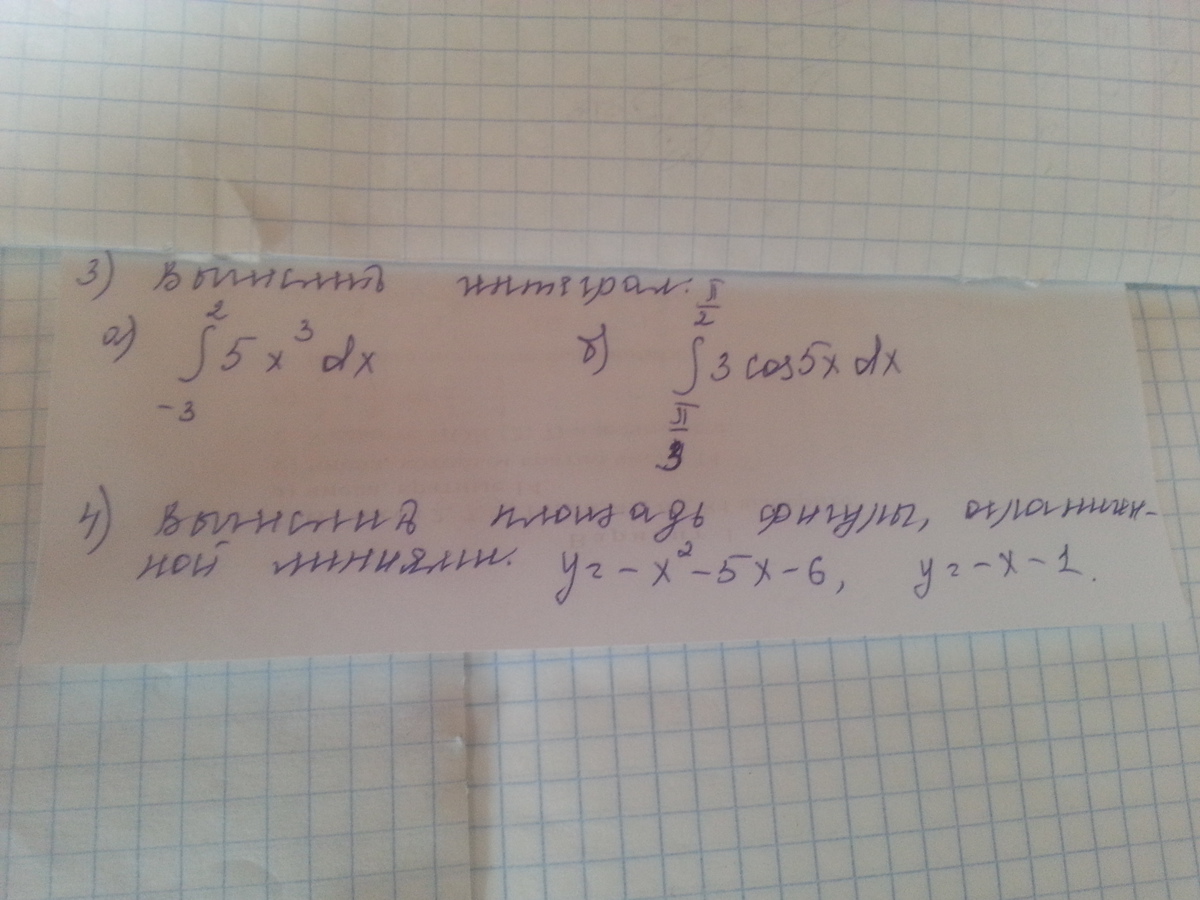 3) Вычислить интеграл:
а) ∫₋₃² 5x³ dx б) ∫_{π/3}^{π/2} 3 cos5x dx
4) Вычислить площадь фигуры, ограничен-
ной линиями. y = -x² - 5x - 6, y = -x - 1.